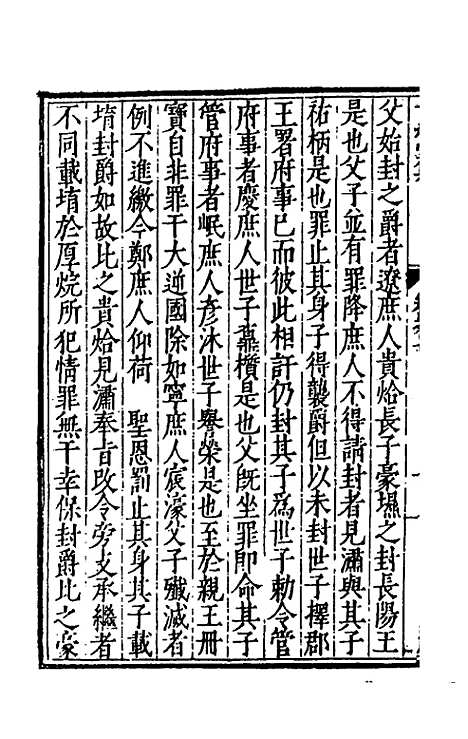 父始封之爵者遼庶人貴㷿長子豪㙺之封長陽王
是也父子並有罪降庶人不得請封者見潚與其子
祐柄是也罪止其身子得襲爵但以未封世子擇郡
王署府事已而彼此相訐仍封其子為世子勅令管
府事者慶庶人世子鼒櫍是也父既坐罪即命其子
管府事者岷庶人彥汰世子譽榮是也至於親王冊
寶自非罪干大逆國除如寧庶人宸濠父子殲滅者
例不進繳今鄭庶人仰荷　聖恩罰止其身其子載
堉封爵如故比之貴㷿見潚奉旨改令旁支承繼者
不同載堉於厚烷所犯情罪無干幸保封爵比之豪